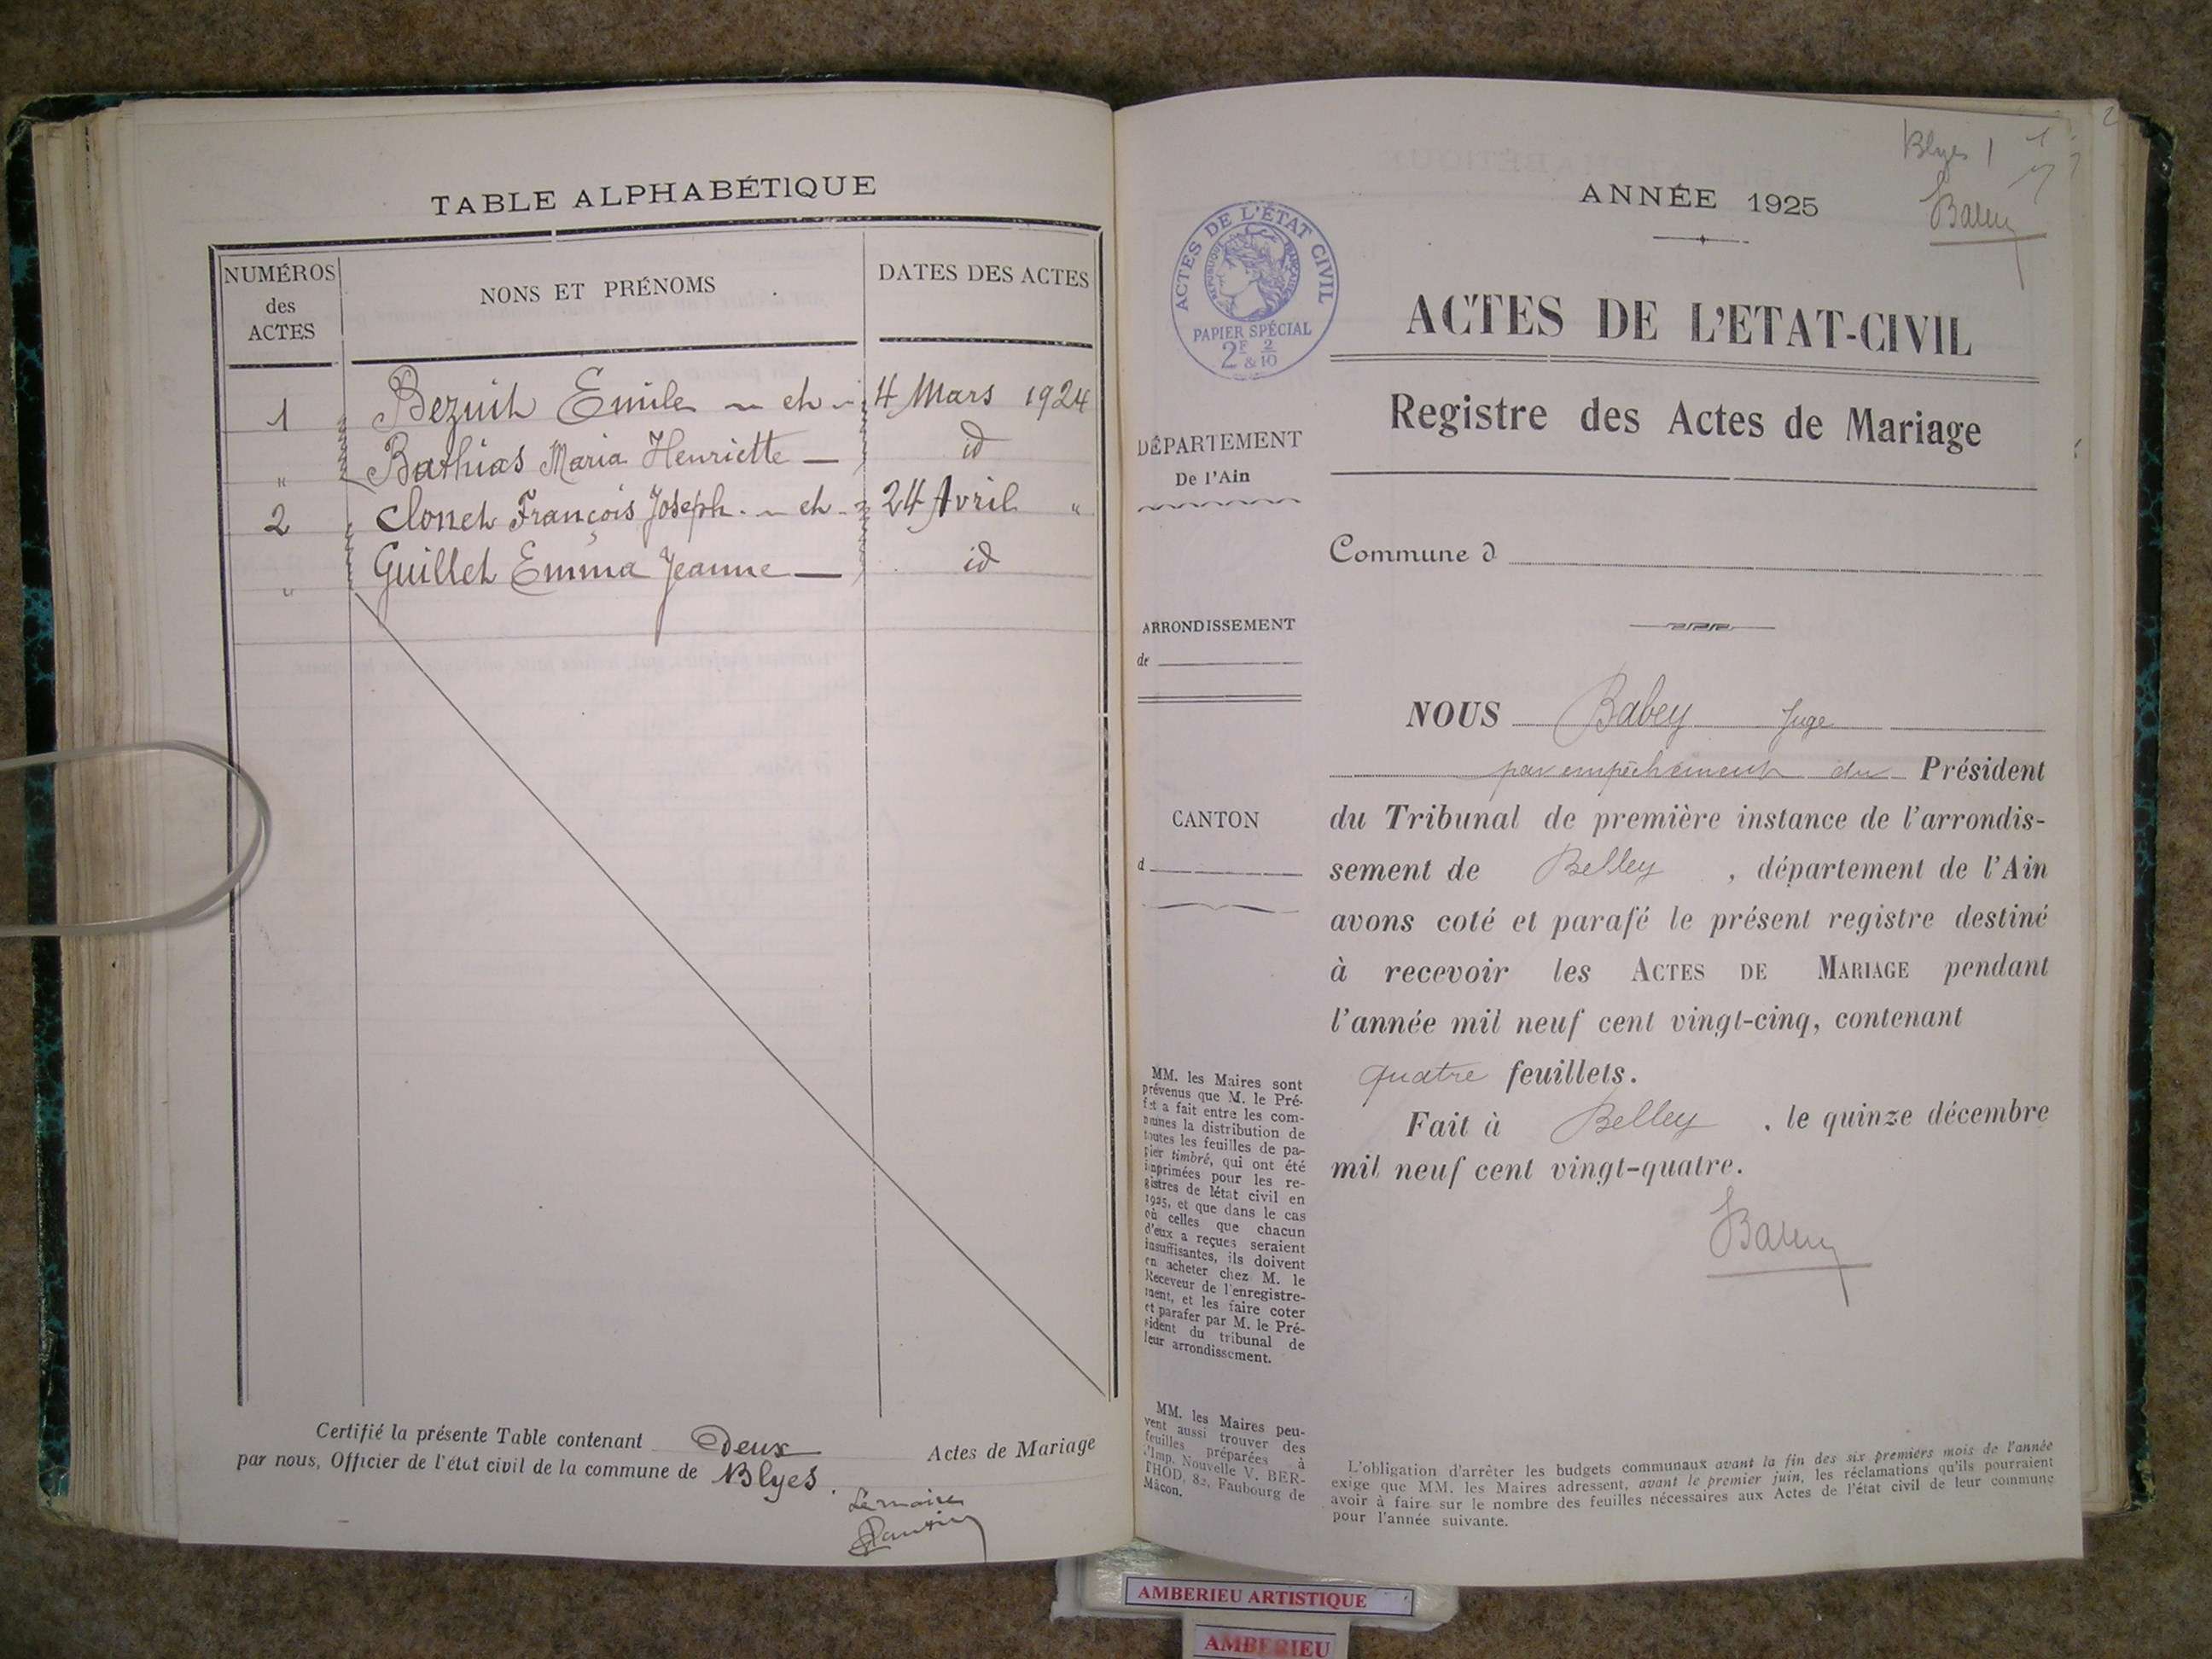 TABLE ALPHABÉTIQUE
NUMÉROS
des
ACTES
NONS ET PRÉNOMS
DATES DES ACTES
1 Bezuit Emile et 4 Mars 1924
" Bathias Maria Henriette — id
2 Clonet François Joseph. et 24 Avril "
" Guillet Emma Jeanne — id
Certifié la présente Table contenant Deux Actes de Mariage
par nous, Officier de l'état civil de la commune de Blyes.
Le maire
Blyes 1
Babey
ANNÉE 1925
ACTES DE L'ÉTAT CIVIL
RÉPUBLIQUE FRANÇAISE
PAPIER SPÉCIAL
2F & 2/10
ACTES DE L'ETAT-CIVIL
Registre des Actes de Mariage
DÉPARTEMENT
De l'Ain
Commune d
ARRONDISSEMENT
de
CANTON
d
NOUS Babey Juge
par empêchement du Président
du Tribunal de première instance de l'arrondis-
sement de Belley, département de l'Ain
avons coté et parafé le présent registre destiné
à recevoir les ACTES DE MARIAGE pendant
l'année mil neuf cent vingt-cinq, contenant
quatre feuillets.
Fait à Belley, le quinze décembre
mil neuf cent vingt-quatre.
Babey
MM. les Maires sont
prévenus que M. le Pré-
fet a fait entre les com-
munes la distribution de
toutes les feuilles de pa-
pier timbré, qui ont été
imprimées pour les re-
gistres de l'état civil en
1925, et que dans le cas
où celles que chacun
d'eux a reçues seraient
insuffisantes, ils doivent
en acheter chez M. le
Receveur de l'enregistre-
ment, et les faire coter
et parafer par M. le Pré-
sident du tribunal de
leur arrondissement.
MM. les Maires peu-
vent aussi trouver des
feuilles préparées à
l'Imp. Nouvelle V. BER-
THOD, 82, Faubourg de
Mâcon.
L'obligation d'arrêter les budgets communaux avant la fin des six premiers mois de l'année
exige que MM. les Maires adressent, avant le premier juin, les réclamations qu'ils pourraient
avoir à faire sur le nombre des feuilles nécessaires aux Actes de l'état civil de leur commune
pour l'année suivante.
AMBERIEU ARTISTIQUE
AMBERIEU